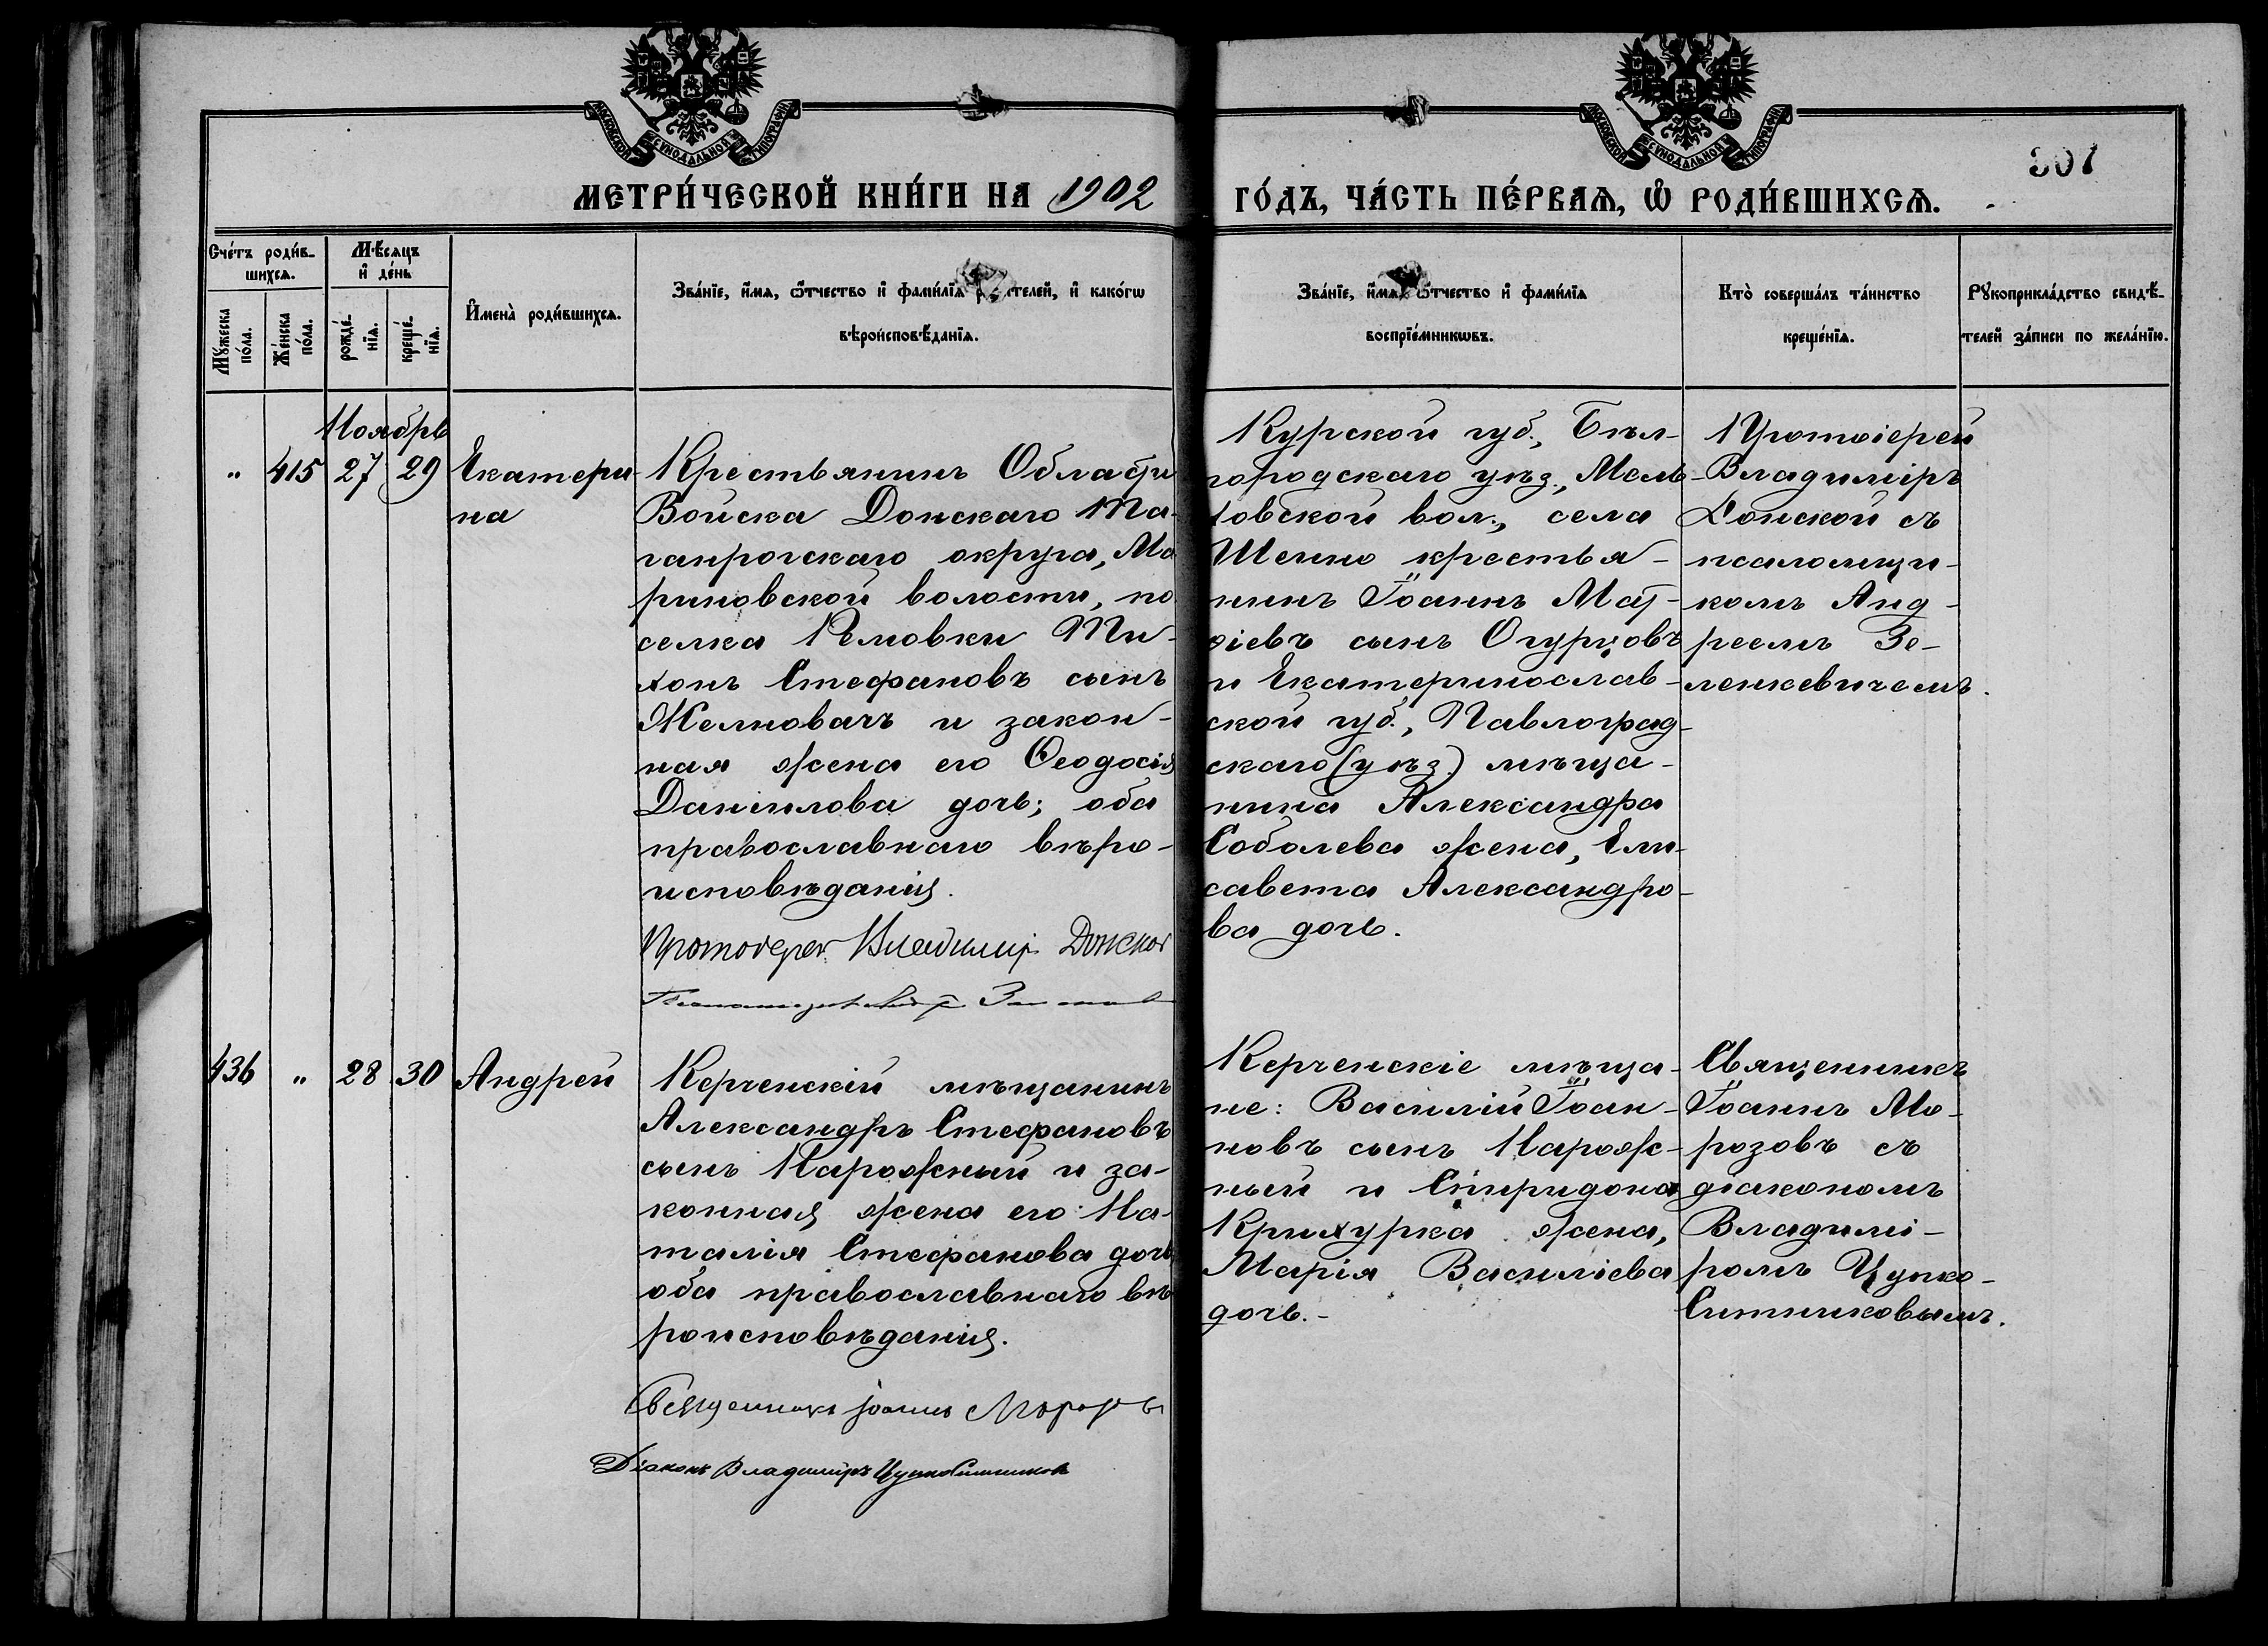 МОСКОВСКОЙ СѴНОДАЛЬНОЙ ТИПОГРАФІИ
МОСКОВСКОЙ СѴНОДАЛЬНОЙ ТИПОГРАФІИ
307
МЕТРИ́ЧЕСКОЙ КНИ́ГИ НА 1902
ГО́ДЪ, ЧА́СТЬ ПЕ́РВАѦ, Ѡ҆ РОДИ́ВШИХСѦ.
Сче́тъ роди́в-
шихсѧ.
Мѣ́сѧцъ
и҆ де́нь
Мꙋ́жеска
по́ла.
Же́нска
по́ла.
рожде́-
нїѧ.
креще́-
нїѧ.
И҆мена̀ роди́вшихсѧ.
Зва́нїе, и҆́мѧ, ѻ҆́тчество и҆ фами́лїѧ родителей, и҆ како́гѡ
вѣроисповѣ́данїѧ.
Зва́нїе, и҆́мѧ, ѻ҆́тчество и҆ фами́лїѧ
воспрїе́мникѡвъ.
Кто̀ соверша́лъ та́инство
креще́нїѧ.
Рꙋкоприкла́дство свидѣ́-
телей за́писи по жела́нїю.
Ноябрь
" 415 27 29 Екатери-
на
Крестьянинъ Области
Войска Донскаго Та-
ганрогскаго округа, Ма
риновской волости, по
селка Ремовки Ти-
хонъ Стефановъ сынъ
Желновачъ и закон-
ная жена его Ѳеодосія
Даніилова дочь; оба
православнаго вѣро-
исповѣданія.
Протоіерей Владиміръ Донской
Курской губ., Бѣл-
городскаго уѣз., Мель
ховской вол., села
Шеино крестья-
нинъ Іоаннъ Мат-
ѳіевъ сынъ Огурцовъ
и Екатеринослав-
ской губ., Павлоград-
скаго (уѣз.) мѣща-
нина Александра
Соболева жена, Ели-
савета Александро-
ва дочь.
Протоіерей
Владиміръ
Донской съ
псаломщи-
комъ Анд-
реемъ Зе-
ленкевичемъ.
436 " 28 30 Андрей
Керченскій мѣщанинъ
Александръ Стефановъ
сынъ Нарожный и за-
конная жена его На-
талія Стефанова дочь
оба православнаго вѣ
роисповѣданія.
Священникъ Іоаннъ Морозовъ
Діаконъ Владиміръ Цупкоситниковъ
Керченскіе мѣща-
не: Василій Іоан-
новъ сынъ Нарож-
ный и Спиридона
Крихурка жена,
Марія Василіева
дочь.-
Священникъ
Іоаннъ Мо-
розовъ съ
діакономъ
Владимі-
ромъ Цупко-
Ситниковымъ.